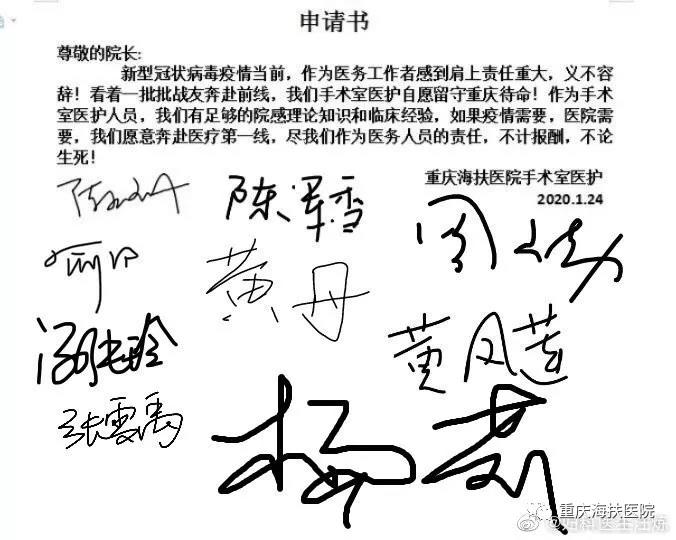 申请书
尊敬的院长:
新型冠状病毒疫情当前，作为医务工作者感到肩上责任重大，义不容
辞！看着一批批战友奔赴前线，我们手术室医护自愿留守重庆待命！作为手术
室医护人员，我们有足够的院感理论知识和临床经验，如果疫情需要，医院需
要，我们愿意奔赴医疗第一线，尽我们作为医务人员的责任，不计报酬，不论
生死！
重庆海扶医院手术室医护
2020.1.24
陈军雪
黄丹
黄凤莲
张雯禹
杨莉
重庆海扶医院